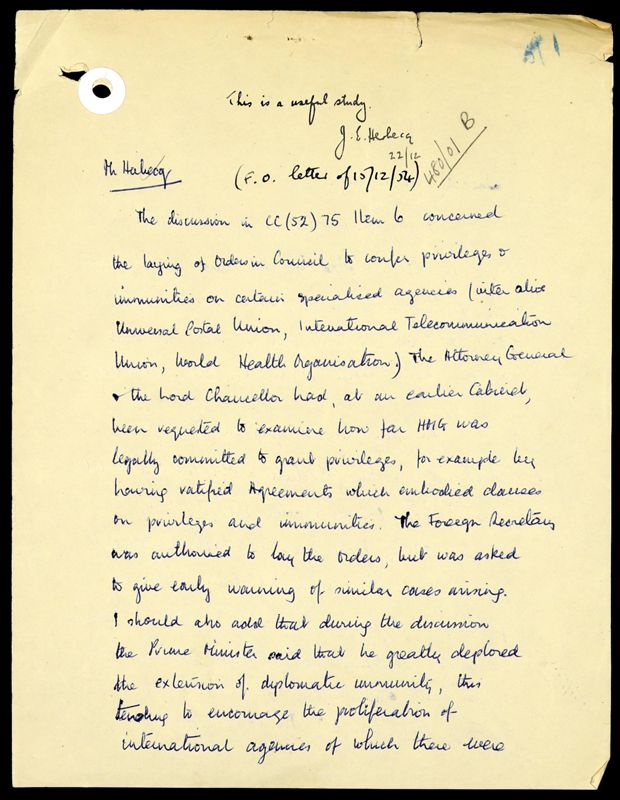 This is a useful study.
J. E. Herbecq
22/12
Mr Herbecq
(F.O. letter of 15/12/54)
480/01 B
The discussion in CC(52) 75 Item 6 concerned
the laying of Orders in Council to confer privileges &
immunities on certain specialised agencies (inter alia
Universal Postal Union, International Telecommunication
Union, World Health Organisation.) The Attorney General
& the Lord Chancellor had, at an earlier Cabinet,
been requested to examine how far HMG was
legally committed to grant privileges, for example by
having ratified Agreements which embodied clauses
on privileges and immunities. The Foreign Secretary
was authorised to lay the orders, but was asked
to give early warning of similar cases arising.
I should also add that during the discussion
the Prime Minister said that he greatly deplored
the extension of diplomatic immunity, this
tending to encourage the proliferation of
international agencies of which there were